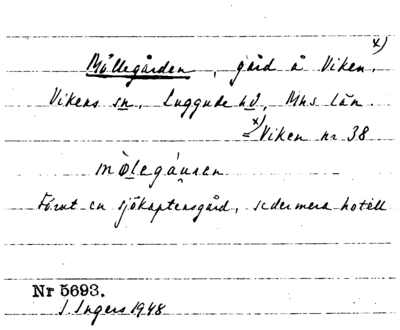 x)
Möllegården, gård å Viken.
Vikens sn, Luggude hd, Mhs län.
x) = Viken nr 38
mòlegáuren
Förut en sjökaptensgård, sedermera hotell
Nr 5693.
I. Ingers 1948